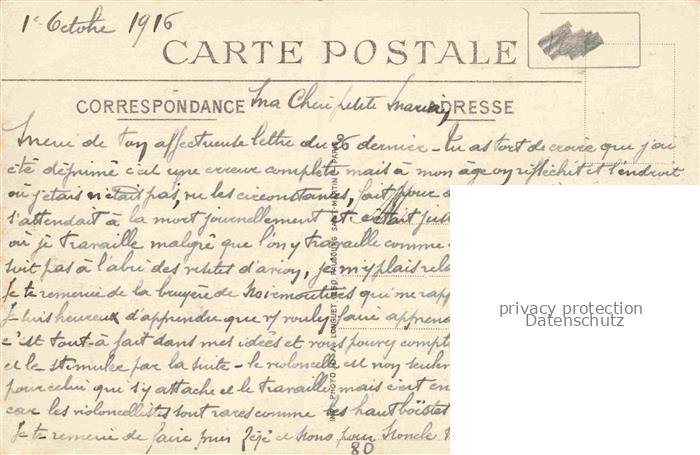 1e Octobre 1916
CARTE POSTALE
CORRESPONDANCE
ADRESSE
Ma Chère petite
Merci de ton affectueuse lettre du 26 dernier - Tu as tort de croire que j'ai
été déprimé c'est une erreur complète mais à mon âge on réfléchit et l'endroit
où j'étais n'était pas, vu les circonstances, fait pour
s'attendait à la mort journellement et c'était
où je travaille malgré que l'on y travaille comme
soit pas à l'abri des visites d'avion, je m'y plais
Je te remercie de la bruyère de Noirmoutiers qui me
Je suis heureux d'apprendre que faire
c'est tout à fait dans mes idées et vous pouvez
et le stimuler par la suite - le violoncelle est non
pour celui qui s'y attache et le travaille mais c'est
car les violoncellistes sont rares comme les hautboïstes
Je te remercie de faire pour et pour
80
privacy protection
Datenschutz